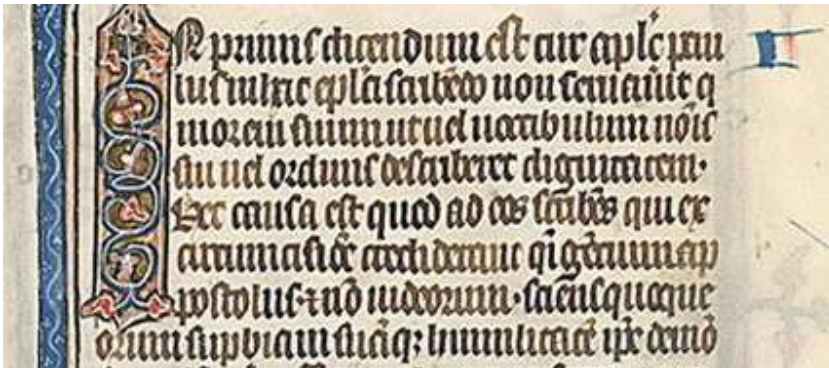 In primis dicendum est cur apl's pau
lus in hac epl'a scribẽdo non seruauit q
morem suum ut uel uocabulum nõis
sui uel ordinis describeret dignitatem·
Hec causa est quod ad eos scribẽs qui ex
circumcisiõe crediderant q̃i gẽtium ap
postolus ⁊ nõ iudeorum· sciẽs quoque
orum supbiam suãq; humilitatẽ ip̃e demõ